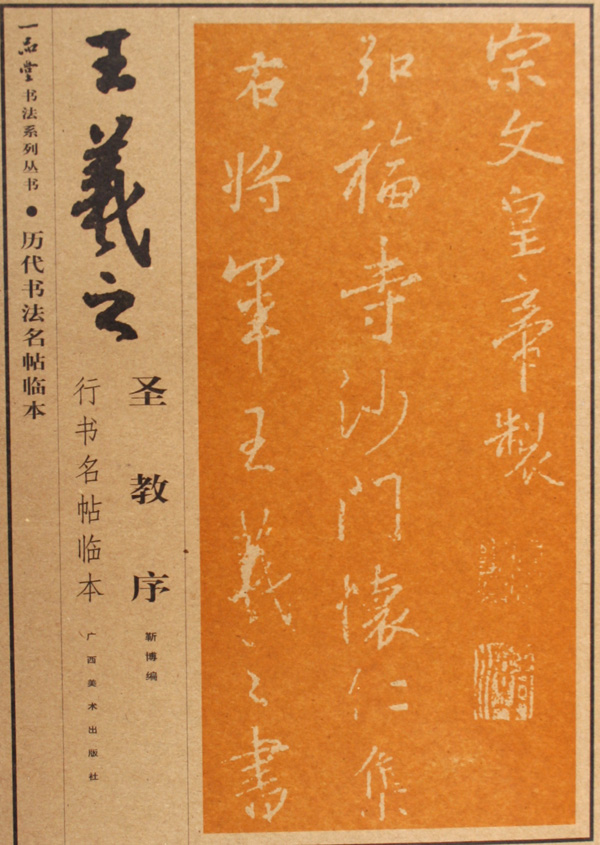 一品堂书法系列丛书●历代书法名帖临本
王羲之
圣教序
行书名帖临本
靳博编
广西美术出版社
宗文皇帝製
弘福寺沙门懷仁集
右将軍王羲之書